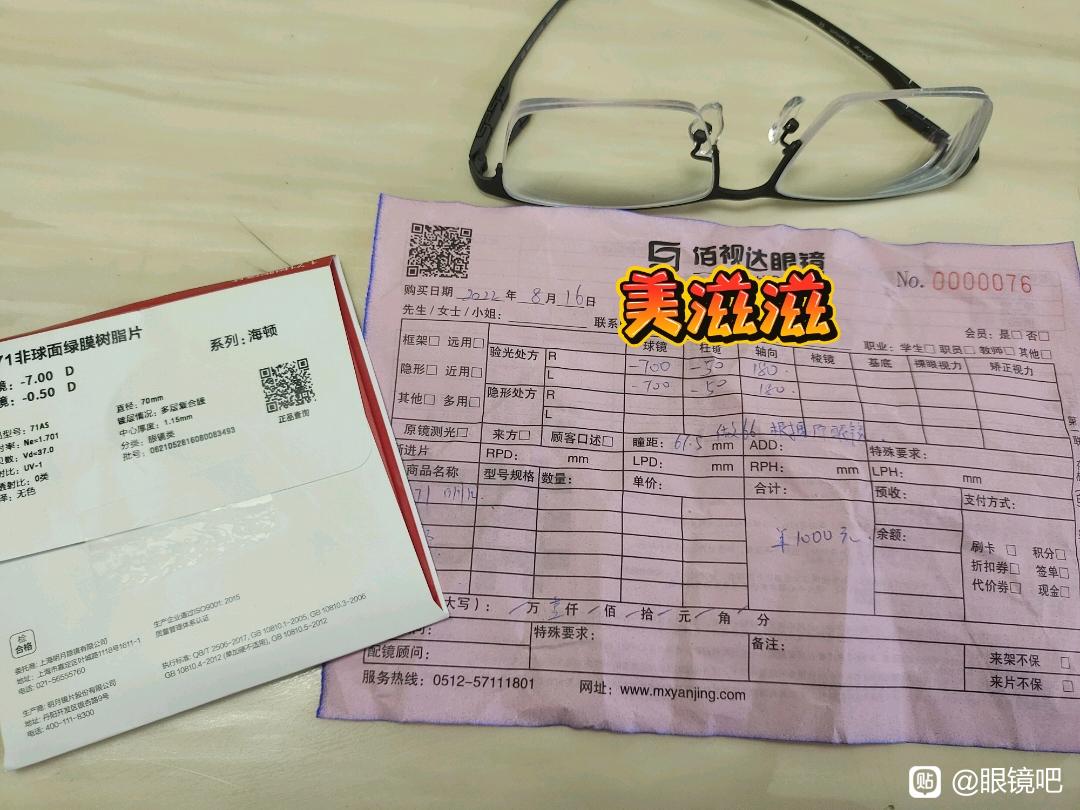 71非球面绿膜树脂片
系列：海顿
镜：-7.00 D
镜：-0.50 D
型号：71AS
射率：Ne=1.701
贝数：Vd=37.0
射比：UV-1
透射比：0类
泽：无色
直径：70mm
镀层情况：多层复合膜
中心厚度：1.15mm
分类：眼镜类
批号：0621052816080083493
正品查询
检
合格
委托商：上海明月眼镜有限公司
地址：上海市嘉定区叶城路1118号1611-1
电话：021-56555760
生产商：明月镜片股份有限公司
地址：丹阳开发区银杏路9号
电话：400-111-8300
生产企业通过ISO9001：2015
质量管理体系认证
执行标准：QB/T 2506-2017, GB 10810.1-2005, GB 10810.3-2006
GB 10810.4-2012 (单加硬不适用), GB 10810.5-2012
佰视达眼镜
No. 0000076
美滋滋
购买日期 2022 年 8 月 16 日
先生/女士/小姐： 联系
会员：是□ 否□
职业：学生□ 职员□ 教师□ 其他□
框架□ 远用□
隐形□ 近用□
其他□ 多用□
球镜 柱镜 轴向 棱镜 基底 裸眼视力 矫正视力
验光处方 R -700 -50 180.
L -700 -50 180.
隐形处方 R
L
原镜测光□ 来方□ 顾客口述□ 瞳距：67.5 mm ADD： 特殊要求：
新进片 RPD： mm LPD： mm RPH： mm LPH： mm
商品名称 型号规格 数量： 单价： 合计： 预收： 支付方式：
71
￥1000元
余额：
刷卡 □ 积分□
折扣券□ 签单□
代价券□ 现金□
大写）： 万 壹仟 佰 拾 元 角 分
特殊要求： 备注：
配镜顾问：
来架不保 □
来片不保 □
服务热线：0512-57111801 网址：www.mxyanjing.com
贴 @眼镜吧